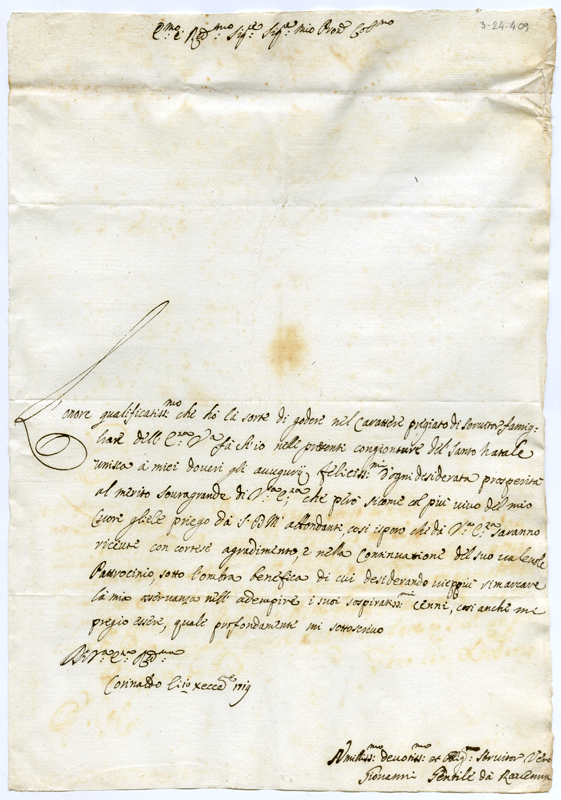 3-24-409
E.mo e Red.mo Sig.re Sig.re mio Pron Col.mo
L'onore qualificatiss:mo che hò la sorte di godere nel Carattere pregiato di servitor famig:
liare dell' E.za V.a fà ch'io nelle presenti congionture del Santo Natale
unisca à miei doveri gli augurij feliciss:mi d'ogni desiderata prosperità
al merito sovragrande di V.a E.za, che però sicome col più vivo del mio
Cuore gliele priego dà S. D. M. abbondanti, così spero che dà V.a E.za saranno
ricevute con cortese agradimento, e nella Continuatione del suo valevole
Patrocinio, sotto l'ombra benefica di cui desiderando vieppiù rimarcare
la mia osservanza nell' adempire i suoi sospiratiss:mi Cenni, così anche mi
pregio essere, quale profondamente mi sottoscrivo
Di V.a E.za Red.ma
Corinaldo li 10 Xecca 1719
Umiliss:mo devotiss:mo et Oblig:mo Servitor Vero
Giovanni Gentile dà